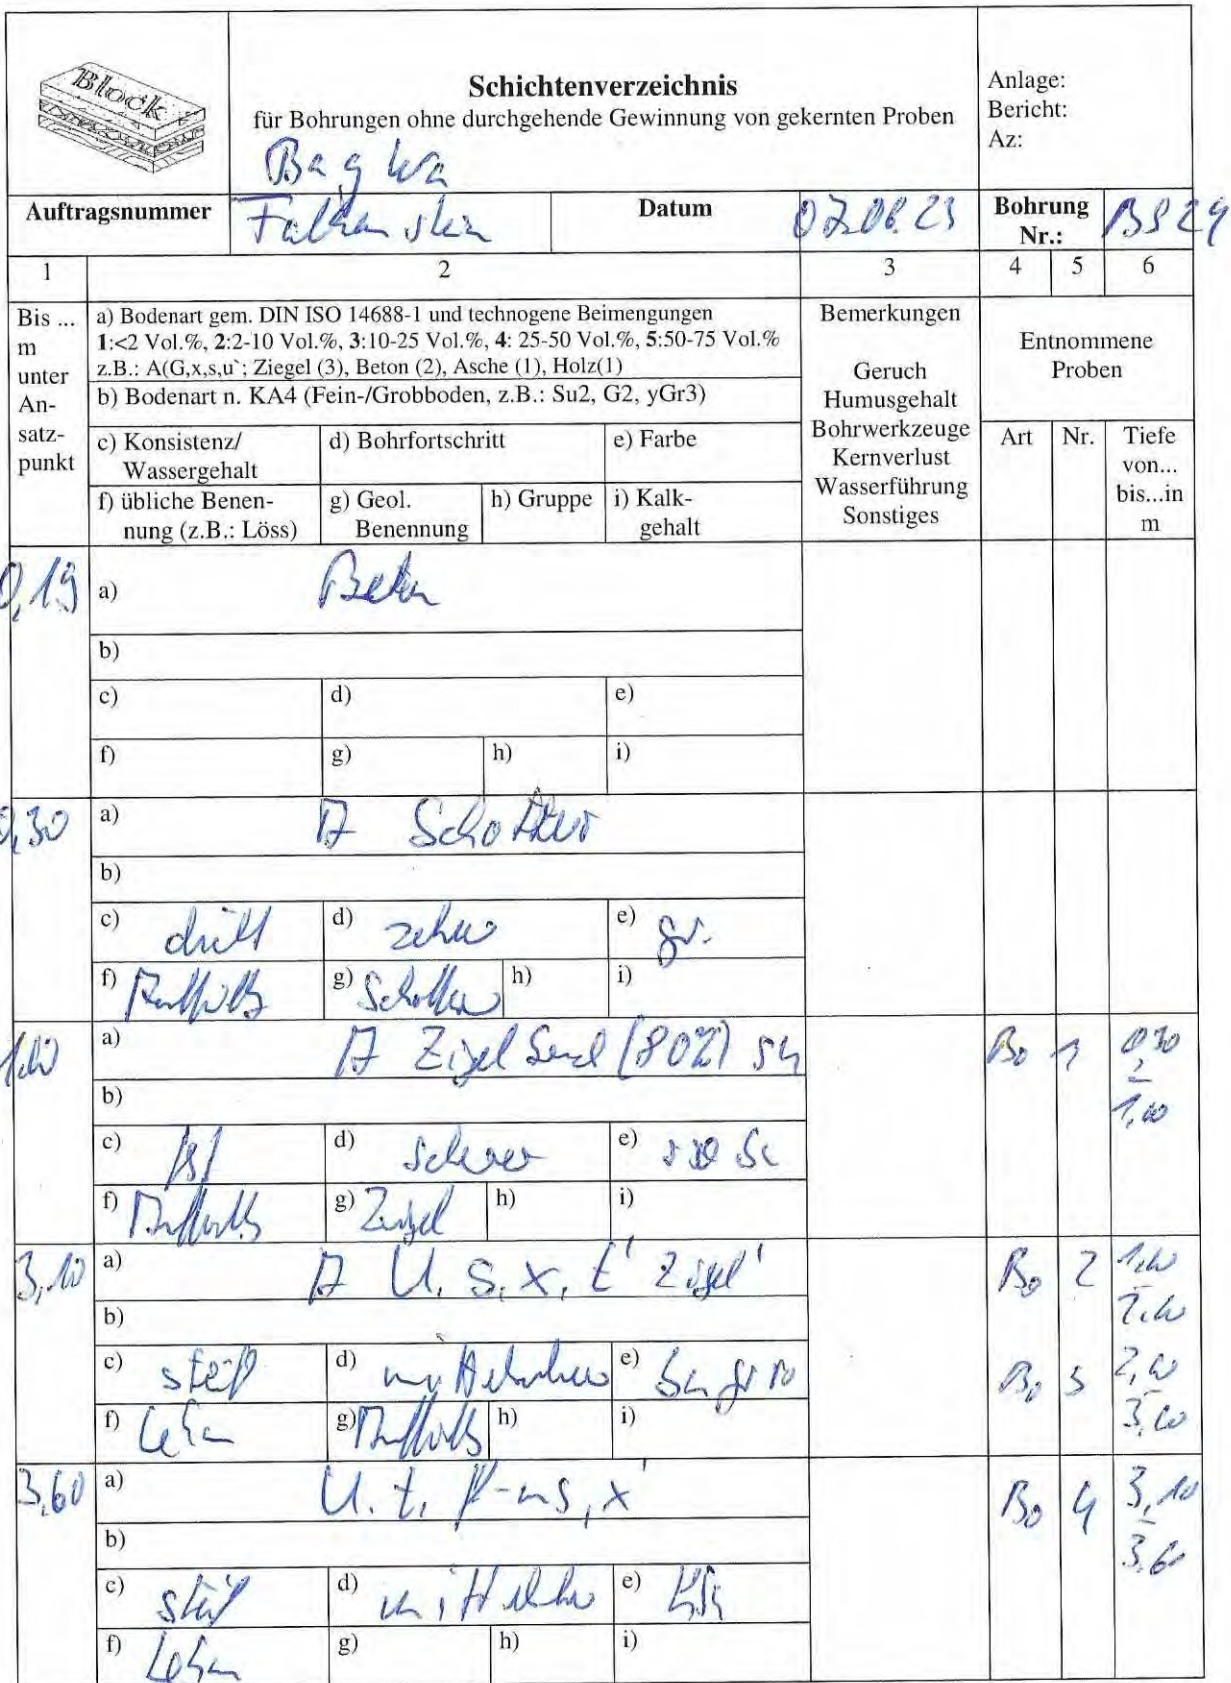 Block
Schichtenverzeichnis
für Bohrungen ohne durchgehende Gewinnung von gekernten Proben
Anlage:
Bericht:
Az:
Auftragsnummer
Datum
07.08.23
Bohrung
Nr.:
BS 24
1 2 3 4 5 6
Bis ...
m
unter
An-
satz-
punkt
a) Bodenart gem. DIN ISO 14688-1 und technogene Beimengungen
1:<2 Vol.%, 2:2-10 Vol.%, 3:10-25 Vol.%, 4: 25-50 Vol.%, 5:50-75 Vol.%
z.B.: A(G,x,s,u`; Ziegel (3), Beton (2), Asche (1), Holz(1)
b) Bodenart n. KA4 (Fein-/Grobboden, z.B.: Su2, G2, yGr3)
c) Konsistenz/
Wassergehalt
d) Bohrfortschritt
e) Farbe
f) übliche Benen-
nung (z.B.: Löss)
g) Geol.
Benennung
h) Gruppe
i) Kalk-
gehalt
Bemerkungen
Geruch
Humusgehalt
Bohrwerkzeuge
Kernverlust
Wasserführung
Sonstiges
Entnommene
Proben
Art
Nr.
Tiefe
von...
bis...in
m
0,19
a) Beton
b)
c) d) e)
f) g) h) i)
0,30
a) A Schotter
b)
c) d) e) gr.
f) g) Schotter h) i)
a) A (80%)
b)
c) d) schwer e)
f) g) Ziegel h) i)
Bo 1 0,30
-
3,10
a) A U, s, x, t' Zigel'
b)
c) steif d) e)
f) Lehm g) h) i)
Bo 2
Bo 3
3,60
a) U, t, f-ms, x'
b)
c) steif d) e)
f) Lehm g) h) i)
Bo 4 3,10
-
3,60